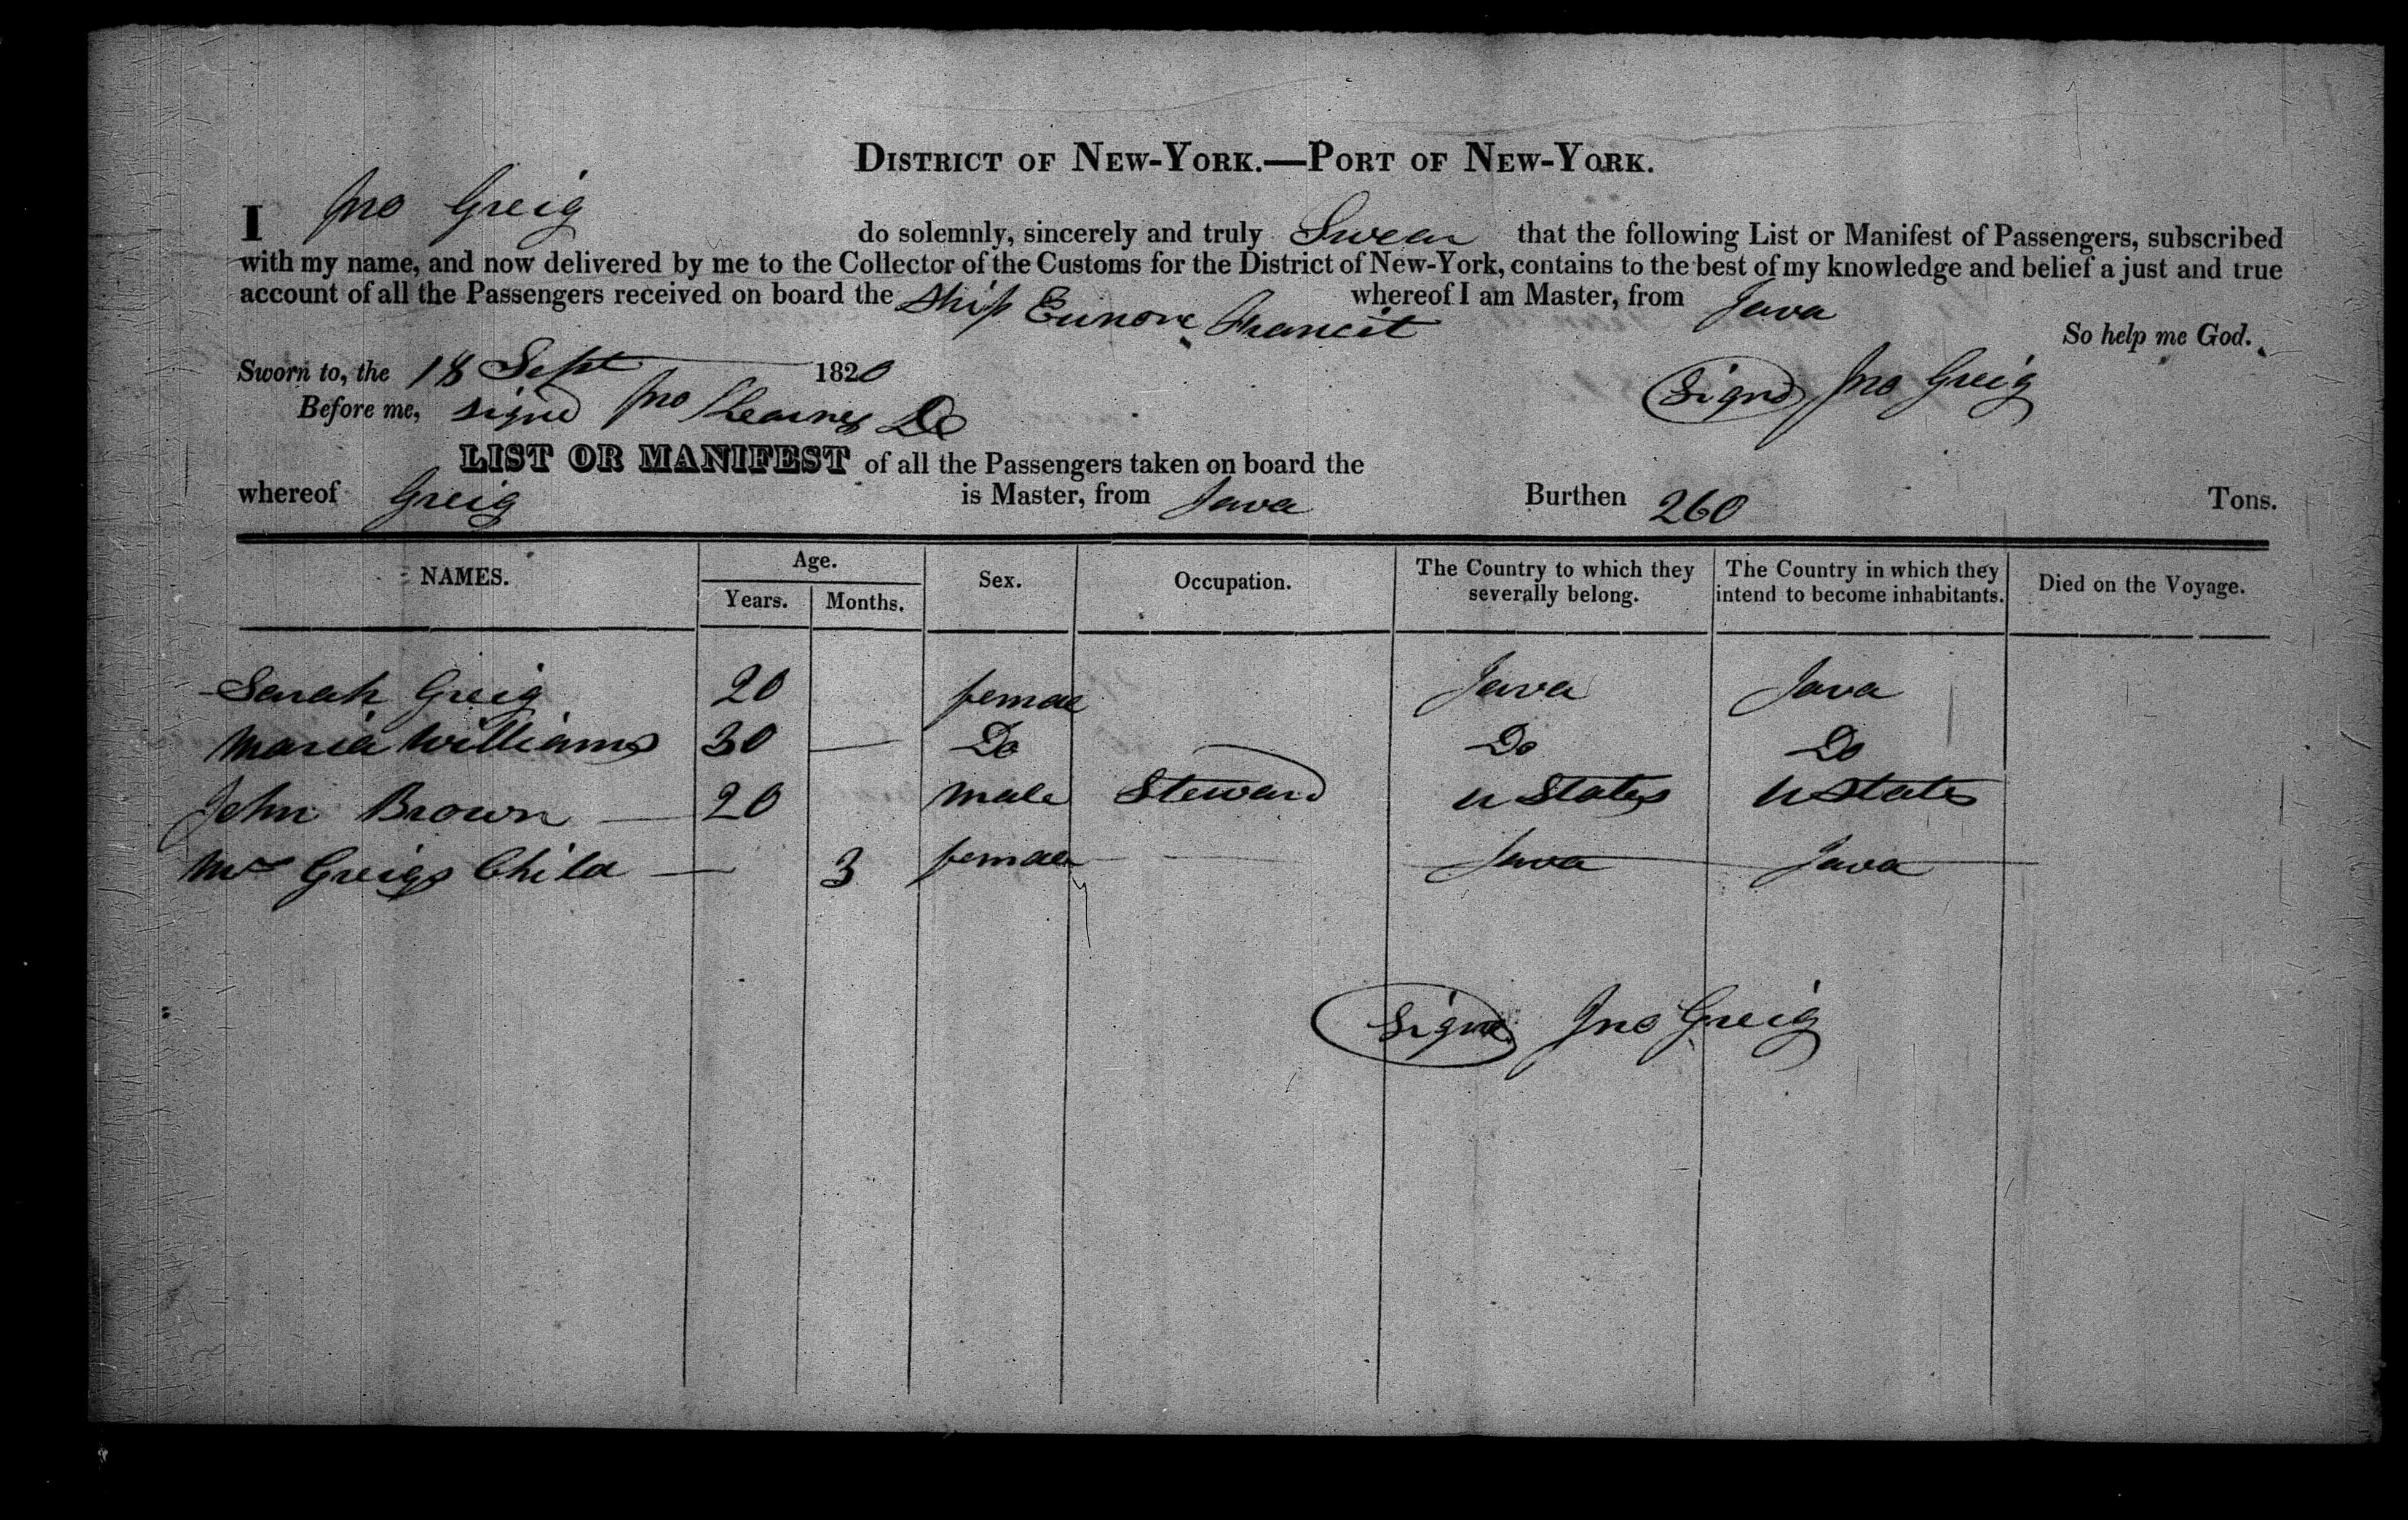 DISTRICT OF NEW-YORK.—PORT OF NEW-YORK.
I Jno Greig do solemnly, sincerely and truly Swear that the following List or Manifest of Passengers, subscribed
with my name, and now delivered by me to the Collector of the Customs for the District of New-York, contains to the best of my knowledge and belief a just and true
account of all the Passengers received on board the Ship whereof I am Master, from Java
So help me God.
Sworn to, the 18 Sept 1820 Signd Jno Greig
Before me, signd Jno
LIST OR MANIFEST of all the Passengers taken on board the
whereof Greig is Master, from Java Burthen 260 Tons.
NAMES. Age. Years. Months. Sex. Occupation. The Country to which they severally belong. The Country in which they intend to become inhabitants. Died on the Voyage.
Sarah Greig 20 female Java Java
Maria Williams 30 — Do Do Do
John Brown — 20 Male Steward U States U States
Mrs Greigs Child — 3 female Java Java
Signd Jno Greig